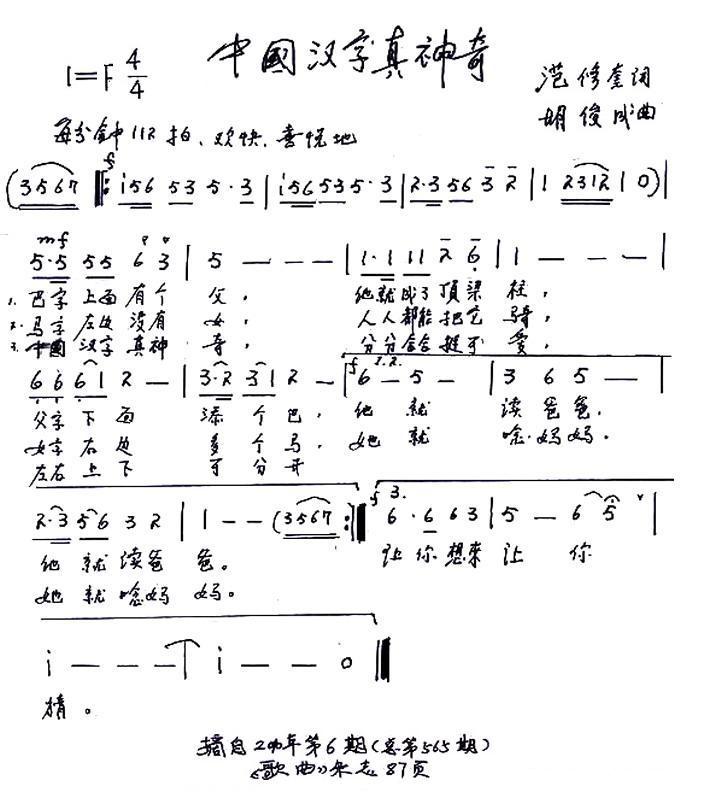 中國汉字真神奇
1=F 4/4
范修奎词
胡俊成曲
每分钟112拍、欢快、喜悦地
f
(3567 ‖: i56 53 5·3 | i56 53 5·3 | 2·3 56 3 2 | 1 2312 1 0) |
mf
5·5 55 6 3 | 5 - - - | 1·1 11 2 6 | 1 - - - |
1. 巴字上面有个父, 他就成了頂梁柱,
2. 马字左边没有女, 人人都能把它骑,
3. 中國汉字真神奇, 分分合合挺可爱,
f 1.2.
6 6 6 1 2 - | 3·2 3 1 2 - | 6 - 5 - | 3 6 5 - |
父字下面添个巴, 他就读爸爸,
女字右边多个马, 她就唸妈妈。
左右上下可分开
f 3.
2·3 56 3 2 | 1 - - (3567 :‖ 6·6 63 | 5 - 6 5 |
他就读爸爸。 让你想来让你
她就唸妈妈。
i - - - | i - - 0 ‖
猜。
摘自2007年第6期(总第565期)
《歌曲》杂志87页